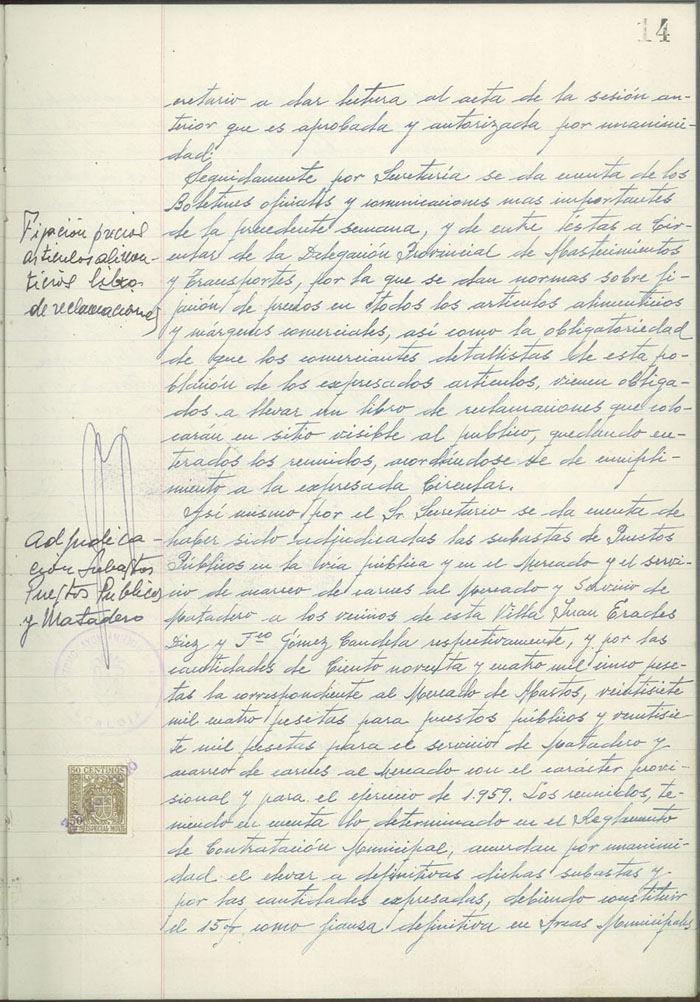 14
cretario a dar lectura al acta de la sesión an-
terior que es aprobada y autorizada por unanimi-
dad.
Seguidamente por Secretaría se da cuenta de los
Boletines oficiales y comunicaciones mas importantes
de la precedente semana, y de entre éstas a Cir-
cular de la Delegación Provincial de Abastecimientos
y Transportes, por la que se dan normas sobre fi-
jación de precios en todos los artículos alimenticios
y márgenes comerciales, así como la obligatoriedad
de que los comerciantes detallistas de esta po-
blación de los expresados artículos, vienen obliga-
dos a llevar un libro de reclamaciones que colo-
carán en sitio visible al publico, quedando en-
terados los reunidos, acordándose se de cumpli-
miento a la expresada Circular.
Así mismo por el Sr Secretario se da cuenta de
haber sido adjudicadas las subastas de Puestos
Públicos en la vía pública y en el Mercado y el servi-
cio de acarreo de carnes al Mercado y Servicio de
Matadero a los vecinos de esta Villa Juan
Diez y Fco Gómez Candela respectivamente, y por las
cantidades de Ciento noventa y cuatro mil cinco pese-
tas la correspondiente al Mercado de Abastos, veintisiete
mil cuatro pesetas para puestos públicos y veintisie-
te mil pesetas para el servicio de Matadero y
acarreo de carnes al Mercado con el carácter provi-
sional y para el ejercicio de 1.959. Los reunidos, te-
niendo en cuenta lo determinado en el Reglamento
de Contratación Municipal, acuerdan por unanimi-
dad el elevar a definitivas dichas subastas y
por las cantidades expresadas, debiendo constituir
el 15% como fianza definitiva en Arcas Municipales
Fijación precios
articulos alimen-
ticios libro
de reclamaciones
Adjudica-
ción Subastas
Puestos Publicos
y Matadero
50 CENTIMOS
50
ESPECIAL MOVIL